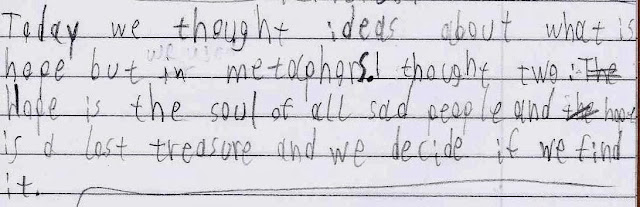 Today we thought ideas about what is
hope but in metaphors. I thought two: The
Hope is the soul of all sad people and the hope
is a lost treasure and we decide if we find
it.